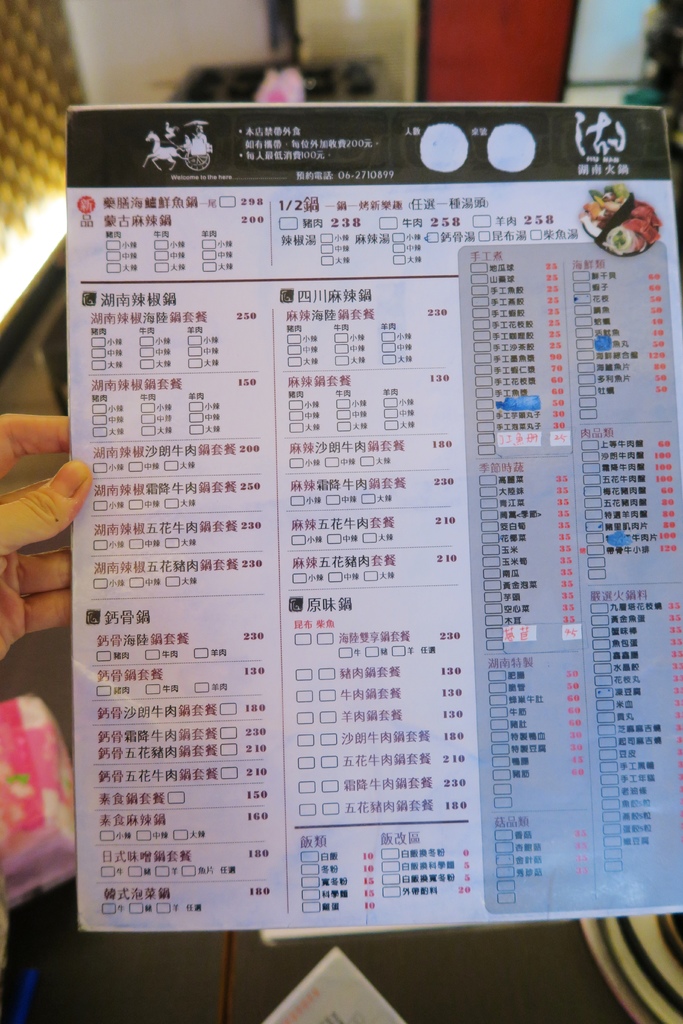 本店禁帶外食
如有攜帶,每位外加收費200元。
每人最低消費100元。
Welcome to the here
預約電話: 06-2710899
人數
桌號
湖南火鍋
新品
藥膳海鱸鮮魚鍋 一尾 298
蒙古麻辣鍋 200
豬肉 牛肉 羊肉
小辣 小辣 小辣
中辣 中辣 中辣
大辣 大辣 大辣
1/2鍋 一鍋一烤新樂趣 (任選一種湯頭)
豬肉 238 牛肉 258 羊肉 258
辣椒湯 小辣 中辣 大辣 麻辣湯 小辣 中辣 大辣 鈣骨湯 昆布湯 柴魚湯
湖南辣椒鍋
湖南辣椒海陸鍋套餐 250
豬肉 牛肉 羊肉
小辣 小辣 小辣
中辣 中辣 中辣
大辣 大辣 大辣
湖南辣椒鍋套餐 150
豬肉 牛肉 羊肉
小辣 小辣 小辣
中辣 中辣 中辣
大辣 大辣 大辣
湖南辣椒沙朗牛肉鍋套餐 200
小辣 中辣 大辣
湖南辣椒霜降牛肉鍋套餐 250
小辣 中辣 大辣
湖南辣椒五花牛肉鍋套餐 230
小辣 中辣 大辣
湖南辣椒五花豬肉鍋套餐 230
小辣 中辣 大辣
鈣骨鍋
鈣骨海陸鍋套餐 230
豬肉 牛肉 羊肉
鈣骨鍋套餐 130
豬肉 牛肉 羊肉
鈣骨沙朗牛肉鍋套餐 180
鈣骨霜降牛肉鍋套餐 230
鈣骨五花豬肉鍋套餐 210
鈣骨五花牛肉鍋套餐 210
素食鍋套餐 150
素食麻辣鍋 160
小辣 中辣 大辣
日式味噌鍋套餐 180
牛 豬 羊 魚片 任選
韓式泡菜鍋 180
牛 豬 羊 任選
四川麻辣鍋
麻辣海陸鍋套餐 230
豬肉 牛肉 羊肉
小辣 小辣 小辣
中辣 中辣 中辣
大辣 大辣 大辣
麻辣鍋套餐 130
豬肉 牛肉 羊肉
小辣 小辣 小辣
中辣 中辣 中辣
大辣 大辣 大辣
麻辣沙朗牛肉鍋套餐 180
小辣 中辣 大辣
麻辣霜降牛肉鍋套餐 230
小辣 中辣 大辣
麻辣五花牛肉套餐 210
小辣 中辣 大辣
麻辣五花豬肉套餐 210
小辣 中辣 大辣
原味鍋
昆布 柴魚
海陸雙享鍋套餐 230
牛 豬 羊 任選
豬肉鍋套餐 130
牛肉鍋套餐 130
羊肉鍋套餐 130
沙朗牛肉鍋套餐 180
五花牛肉鍋套餐 210
霜降牛肉鍋套餐 230
五花豬肉鍋套餐 180
飯類
白飯 10
冬粉 10
寬冬粉 15
科學麵 15
雞蛋 10
飯改區
白飯換冬粉 0
白飯換科學麵 5
白飯換寬冬粉 5
外帶配料 20
手工煮
地瓜球 25
山藥球 25
手工魚餃 25
手工燕餃 25
手工蝦餃 25
手工花枝餃 25
手工沙茶餃 25
手工墨魚漿 90
手工蝦仁漿 70
手工花枝漿 60
手工魚漿 60
50
手工芋頭丸子 30
手工泡菜丸子 30
25
季節時蔬
高麗菜 35
大陸妹 35
青江菜 35
茼萵<季節> 35
茭白筍 35
花椰菜 35
玉米 35
玉米筍 35
南瓜 35
黃金泡菜 35
芋頭 35
空心菜 35
木耳 35
湖南特製
肥腸 50
脆管 50
蜂巢牛肚 60
牛筋 60
豬肚 60
特製鴨血 30
特製豆腐 30
鴨腸
豬筋
菇品類
香菇
杏鮑菇
金針菇
秀珍菇
海鮮類
鮮干貝 60
蝦子 60
花枝 50
鯛魚 50
蛤蠣 40
魚丸 50
海鮮綜合盤 120
海鱺魚片 80
多利魚片 50
牡蠣 50
肉品類
上等牛肉盤 60
沙朗牛肉盤 100
霜降牛肉盤 100
五花牛肉盤 100
梅花豬肉盤 60
五花豬肉盤 80
特選羊肉盤 80
豬里肌肉片 80
牛肉片 100
帶骨牛小排 120
嚴選火鍋料
九層塔花枝燒 35
黃金魚蛋 35
蟹味棒 35
魚包蛋 35
水晶餃 35
花枝丸 35
凍豆腐 35
米血 35
貢丸 35
芝麻麻吉燒
起司麻吉燒
豆皮
手工馬蹄
手工年糕